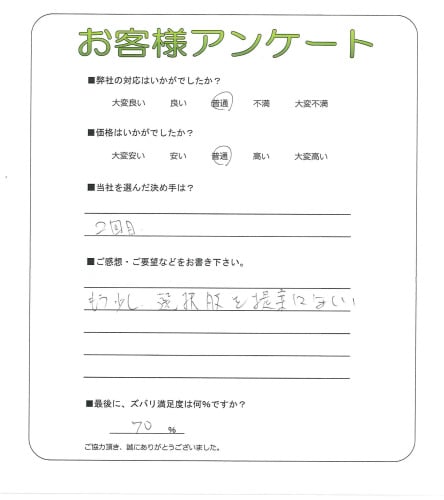 お客様アンケート
■弊社の対応はいかがでしたか？
大変良い 良い 普通 不満 大変不満
■価格はいかがでしたか？
大変安い 安い 普通 高い 大変高い
■当社を選んだ決め手は？
2回目
■ご感想・ご要望などをお書き下さい。
もう少し 選択肢を提案
■最後に、ズバリ満足度は何%ですか？
70 %
ご協力頂き、誠にありがとうございました。